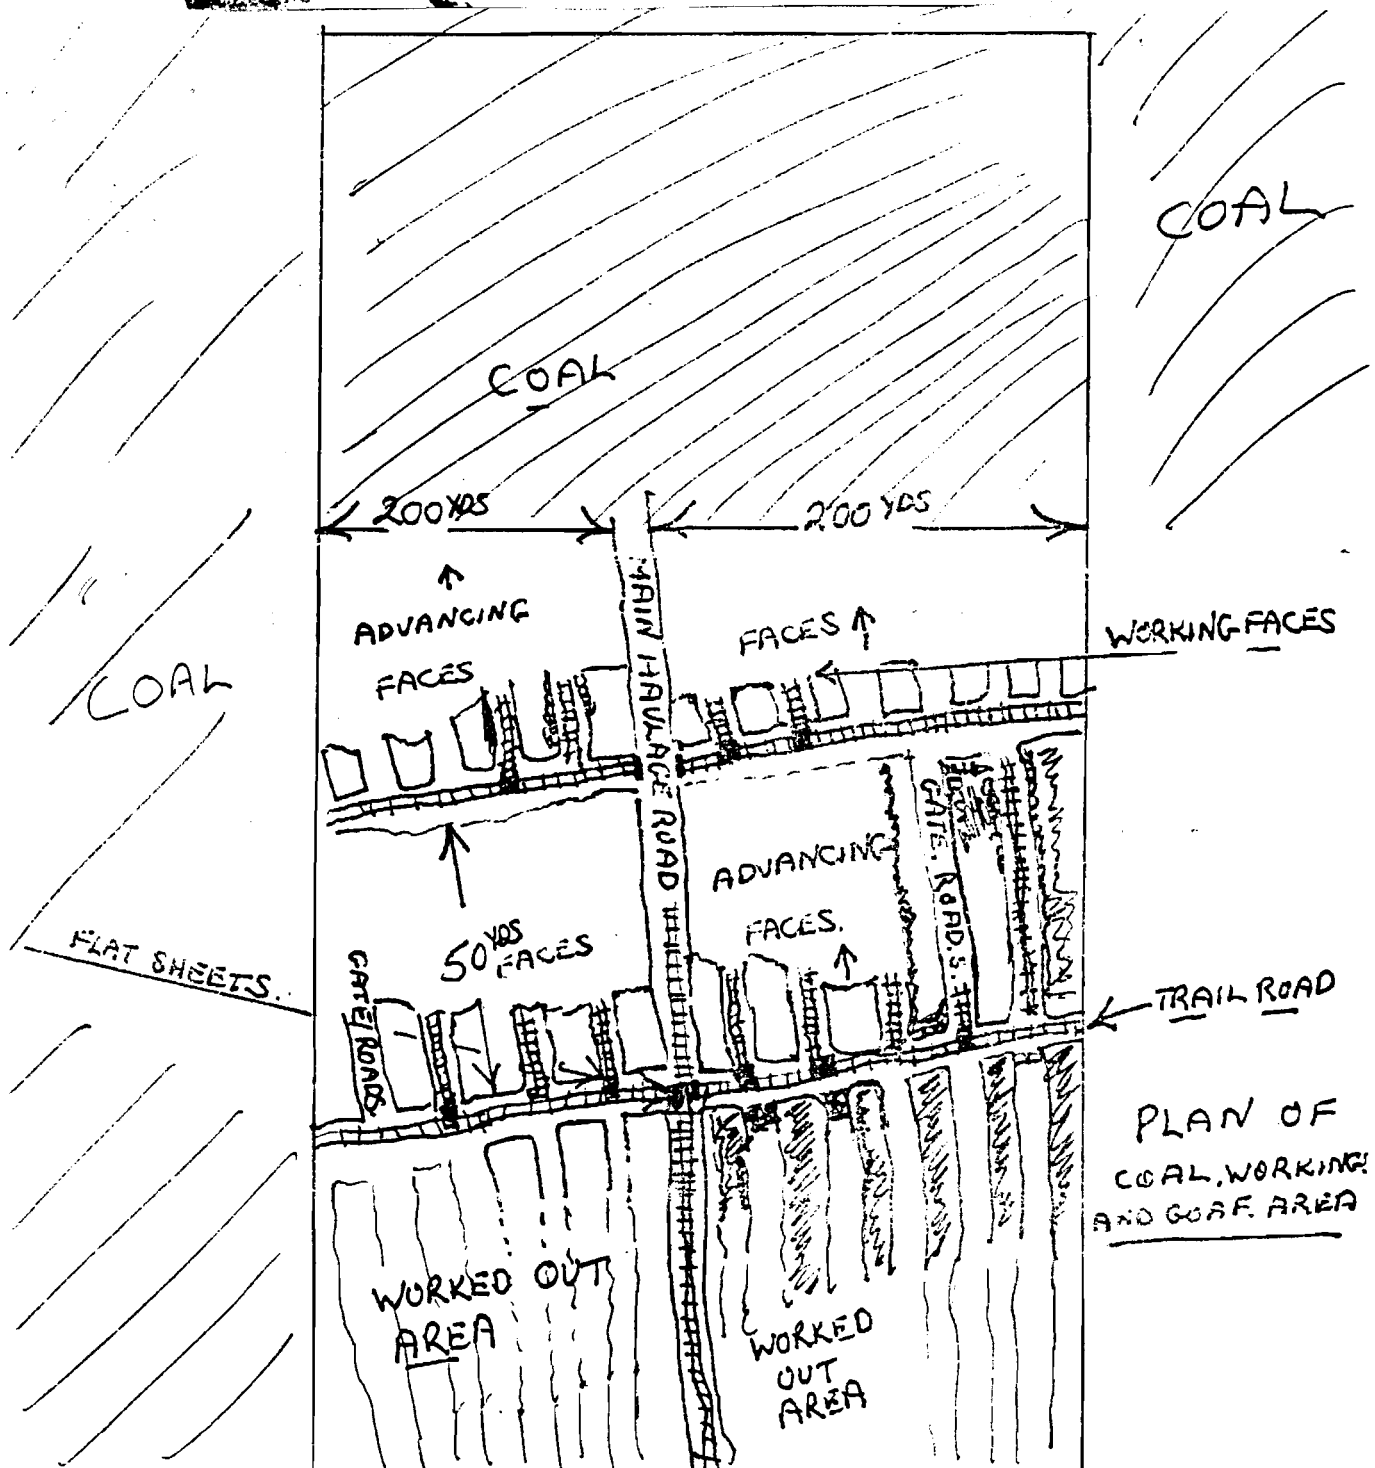 COAL
COAL
200 YDS
200 YDS
MAIN HAULAGE ROAD
ADVANCING
FACES
FACES
WORKING FACES
COAL
ADVANCING
FACES.
GATE. ROAD.S.
50 YDS
FACES
FLAT SHEETS.
GATE ROADS
TRAIL ROAD
PLAN OF
COAL, WORKING
AND GOAF. AREA
WORKED OUT
AREA
WORKED
OUT
AREA